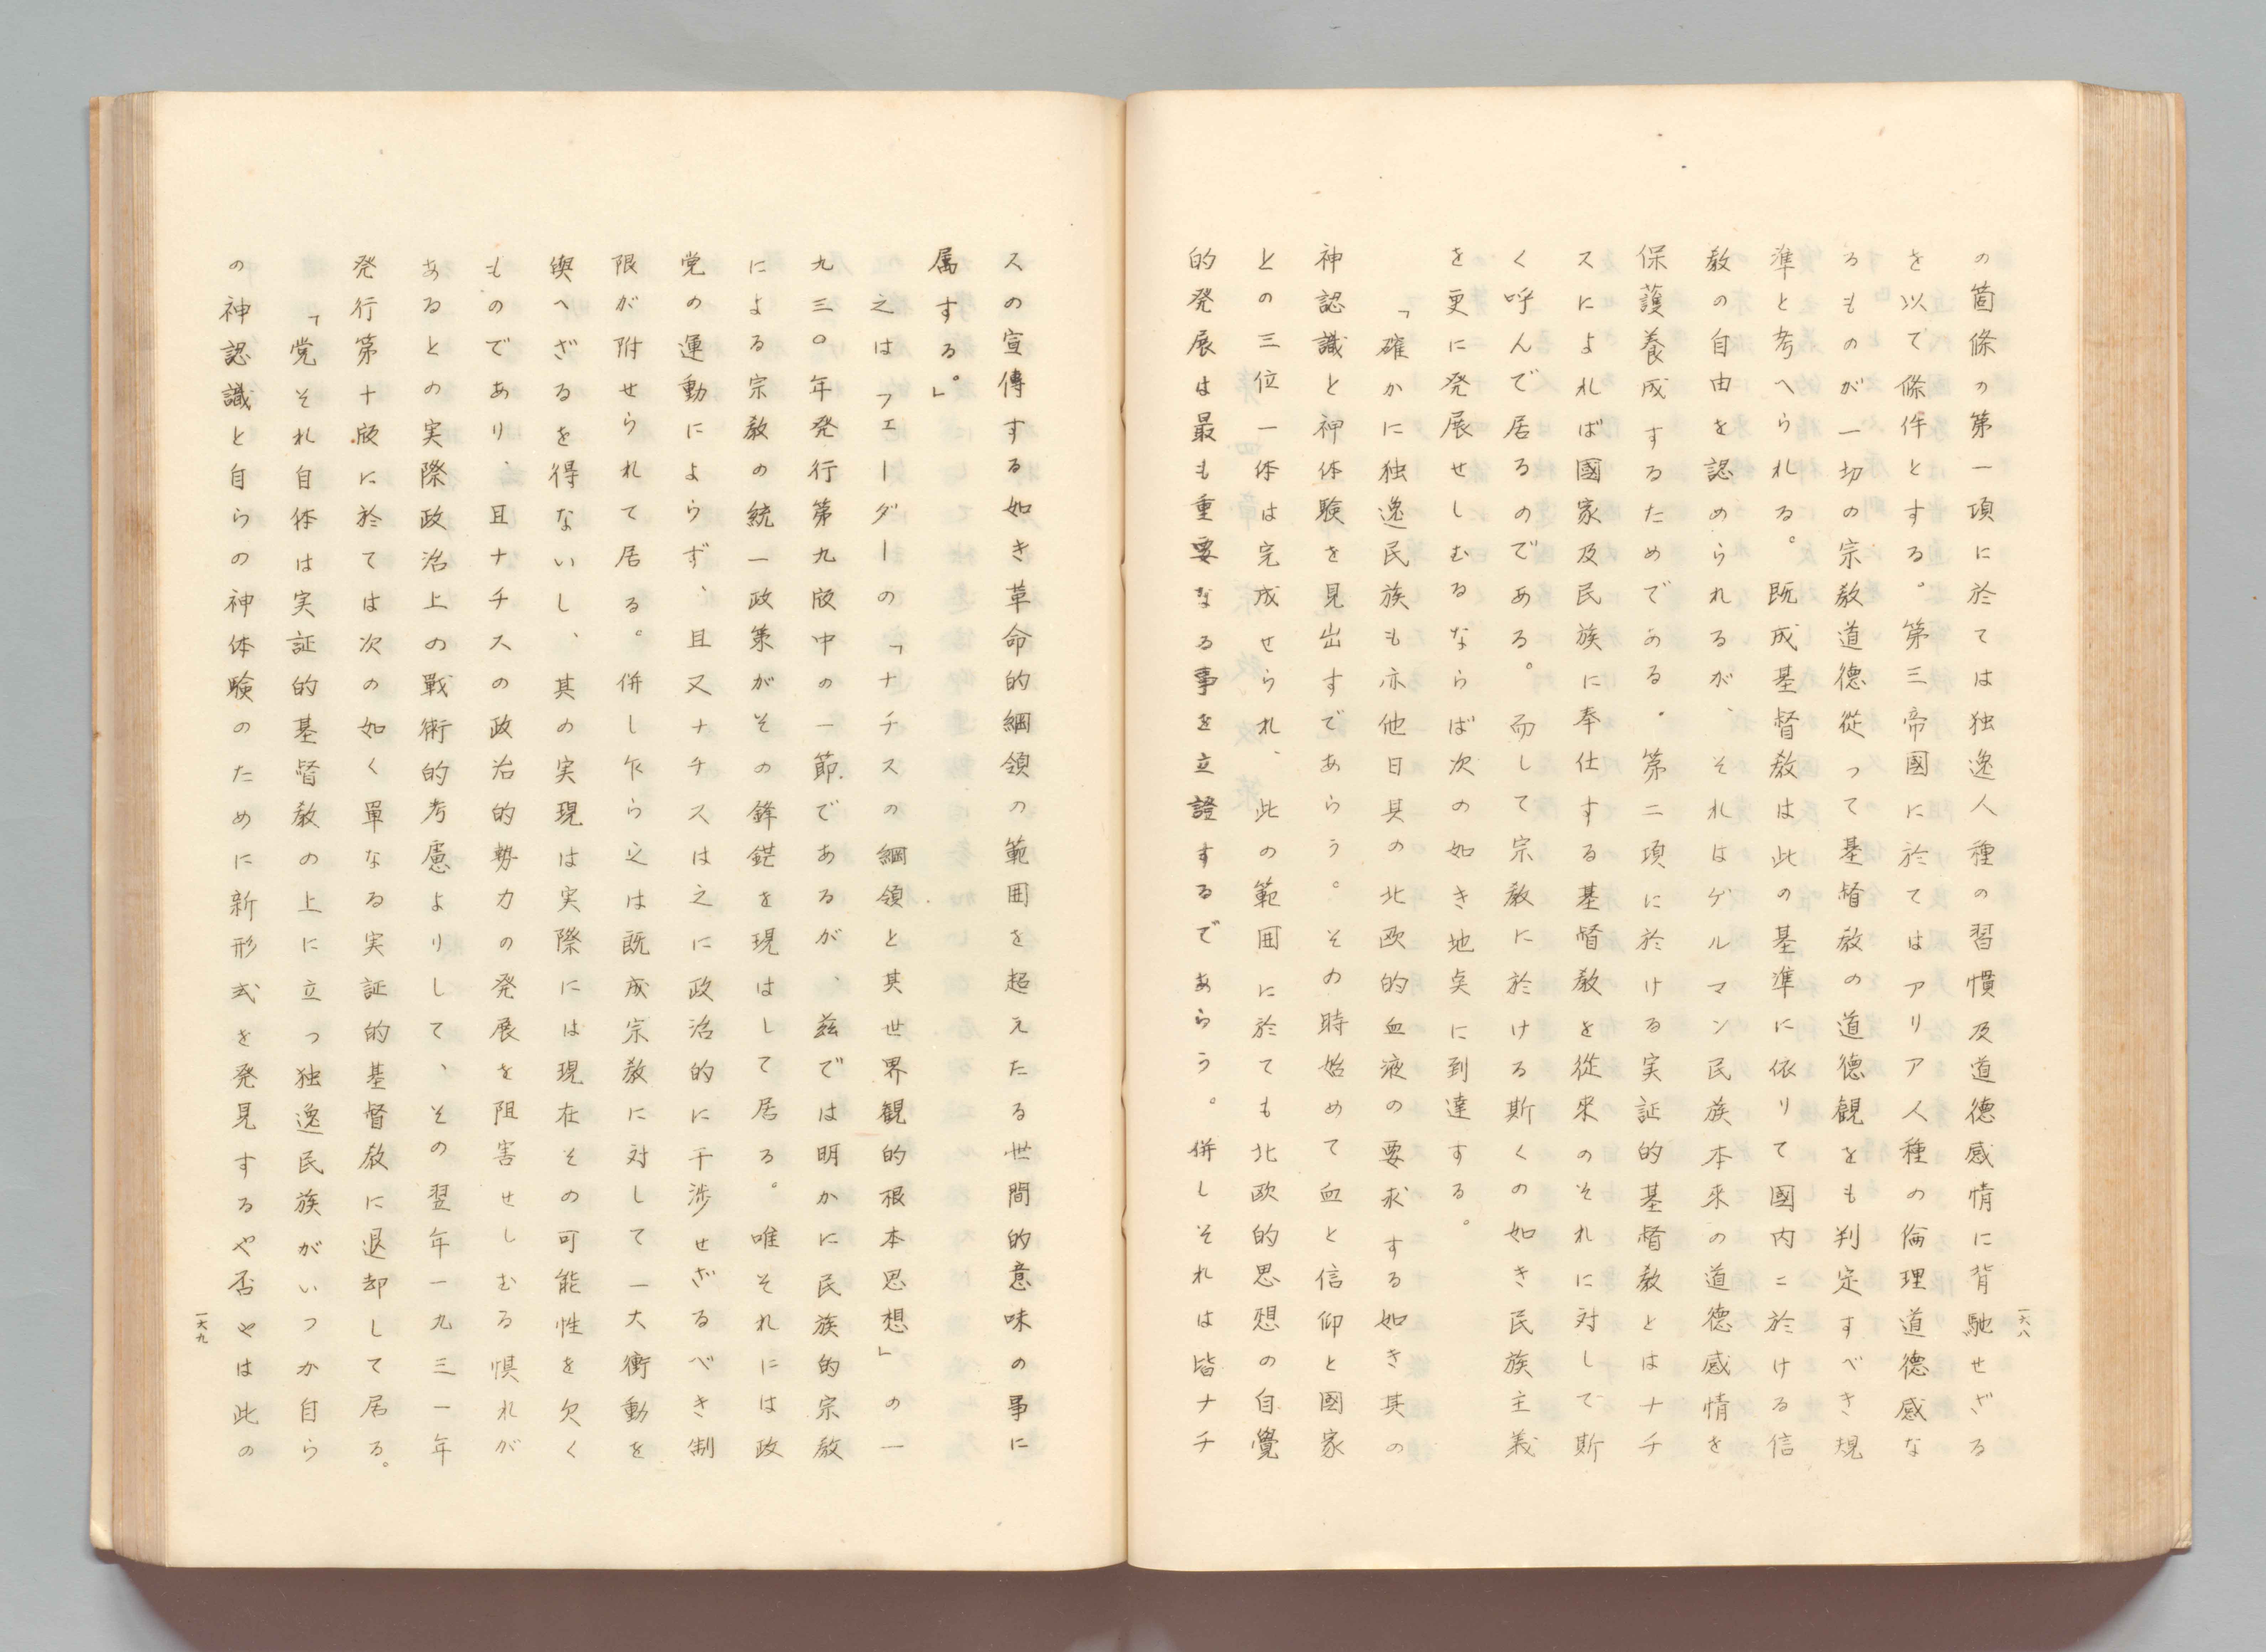 の箇條の第一項に於ては独逸人種の習慣及道德感情に背馳せざる
を以て條件とする。第三帝國に於てはアリア人種の倫理道德感な
るものが一切の宗教道德從って基督教の道德観をも判定すべき規
準と考へられる。既成基督教は此の基準に依りて國内に於ける信
教の自由を認められるが、それはゲルマン民族本来の道德感情を
保護養成するためである・第二項に於ける実証的基督教とはナチ
スによれば國家及民族に奉仕する基督教を從来のそれに対して斯
く呼んで居るのである。而して宗教に於ける斯くの如き民族主義
を更に発展せしむるならば次の如き地奌に到達する。
「確かに独逸民族も亦他日其の北欧的血液の要求する如き其の
神認識と神体験を見出すであらう。その時始めて血と信仰と國家
との三位一体は完成せられ、此の範囲に於ても北欧的思想の自覺
的発展は最も重要なる事を立證するであらう。併しそれは皆ナチ
一六八
スの宣傳する如き革命的綱領の範囲を超えたる世間的意味の事に
属する。」
之はフエーダーの「ナチスの綱領と其世界観的根本思想」の一
九三〇年発行第九版中の一節であるが、茲では明かに民族的宗教
による宗教の統一政策がその鋒鋩を現はして居る。唯それには政
党の運動によらず、且又ナチスは之に政治的に干渉せざるべき制
限が附せられて居る。併し乍ら之は既成宗教に対して一大衝動を
與へざるを得ないし、其の実現は実際には現在その可能性を欠く
ものであり、且ナチスの政治的勢力の発展を阻害せしむる惧れが
あるとの実際政治上の戰術的考慮よりして、その翌年一九三一年
発行第十版に於ては次の如く單なる実証的基督教に退却して居る。
「党それ自体は実証的基督教の上に立つ独逸民族がいつか自ら
の神認識と自らの神体験のために新形式を発見するや否やは此の
一六九